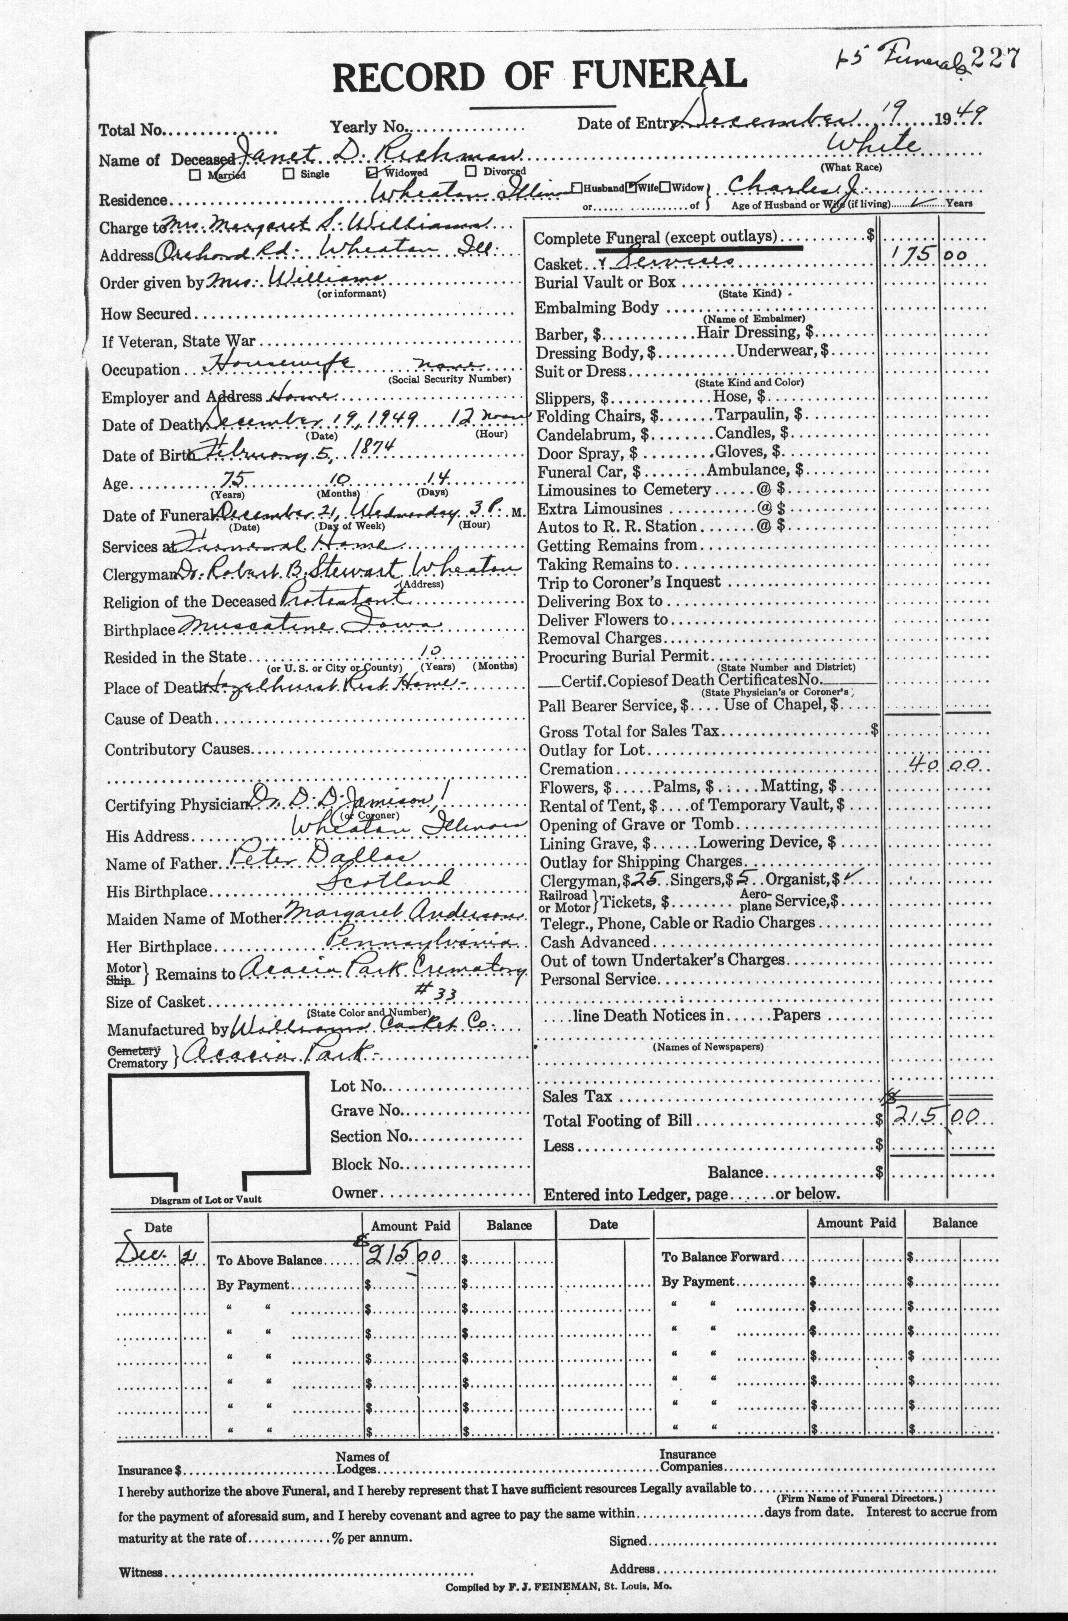 65 Funerals 227
RECORD OF FUNERAL
Total No. Yearly No. Date of Entry December 19 1949
Name of Deceased Janet D. Richman White
(What Race)
Married Single Widowed Divorced
Residence Wheaton, Illinois Husband Wife Widow } Charles J.
or of Age of Husband or Wife (if living) ✓ Years
Charge to Mrs. Margaret S. Williams
Address Orchard Rd. Wheaton Ill.
Order given by Mrs. Williams
(or informant)
How Secured
If Veteran, State War
Occupation Housewife none
(Social Security Number)
Employer and Address Home
Date of Death December 19, 1949 12 noon
(Date) (Hour)
Date of Birth February 5, 1874
Age 75 10 14
(Years) (Months) (Days)
Date of Funeral December 21, Wednesday 3 P. M.
(Date) (Day of Week) (Hour)
Services at Funeral Home
Clergyman Dr. Robert B. Stewart Wheaton
(Address)
Religion of the Deceased Protestant
Birthplace Muscatine Iowa
Resided in the State 10
(or U. S. or City or County) (Years) (Months)
Place of Death Hazelhurst Rest Home -
Cause of Death
Contributory Causes
Certifying Physician Dr. D. D. Jamison,
(or Coroner)
His Address Wheaton, Illinois
Name of Father Peter Dallas
His Birthplace Scotland
Maiden Name of Mother Margaret Anderson
Her Birthplace Pennsylvania
Motor
Ship } Remains to Acacia Park Crematory
Size of Casket #33
(State Color and Number)
Manufactured by Williams Casket Co.
Cemetery
Crematory } Acacia Park -
Lot No.
Grave No.
Section No.
Block No.
Owner
Diagram of Lot or Vault
Complete Funeral (except outlays) $
Casket & Services 175 00
Burial Vault or Box
(State Kind)
Embalming Body
(Name of Embalmer)
Barber, $ Hair Dressing, $
Dressing Body, $ Underwear, $
Suit or Dress
(State Kind and Color)
Slippers, $ Hose, $
Folding Chairs, $ Tarpaulin, $
Candelabrum, $ Candles, $
Door Spray, $ Gloves, $
Funeral Car, $ Ambulance, $
Limousines to Cemetery @ $
Extra Limousines @ $
Autos to R. R. Station @ $
Getting Remains from
Taking Remains to
Trip to Coroner's Inquest
Delivering Box to
Deliver Flowers to
Removal Charges
Procuring Burial Permit
(State Number and District)
Certif. Copies of Death Certificates No.
(State Physician's or Coroner's)
Pall Bearer Service, $ Use of Chapel, $
Gross Total for Sales Tax $
Outlay for Lot
Cremation 40 00
Flowers, $ Palms, $ Matting, $
Rental of Tent, $ of Temporary Vault, $
Opening of Grave or Tomb
Lining Grave, $ Lowering Device, $
Outlay for Shipping Charges
Clergyman, $ 25 Singers, $ 5 Organist, $ ✓
Railroad
or Motor } Tickets, $ Aero-
plane Service, $
Telegr., Phone, Cable or Radio Charges
Cash Advanced
Out of town Undertaker's Charges
Personal Service
line Death Notices in Papers
(Names of Newspapers)
Sales Tax
Total Footing of Bill $ 215 00
Less $
Balance $
Entered into Ledger, page or below.
Date Amount Paid Balance Date Amount Paid Balance
Dec. 21 To Above Balance $ 215 00 $ To Balance Forward $
By Payment $ $ By Payment $ $
" " $ $ " " $ $
" " $ $ " " $ $
" " $ $ " " $ $
" " $ $ " " $ $
" " $ $ " " $ $
" " $ $ " " $ $
Insurance $ Names of Lodges Insurance Companies
I hereby authorize the above Funeral, and I hereby represent that I have sufficient resources Legally available to
(Firm Name of Funeral Directors.)
for the payment of aforesaid sum, and I hereby covenant and agree to pay the same within days from date. Interest to accrue from
maturity at the rate of % per annum. Signed
Witness Address
Compiled by F. J. FEINEMAN, St. Louis, Mo.